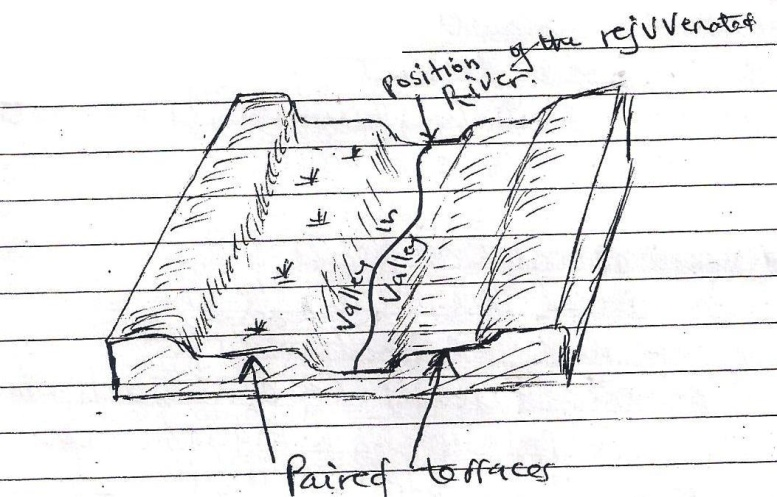 Position of the rejuvenated
River.
Valley in
Valley
Paired terraces